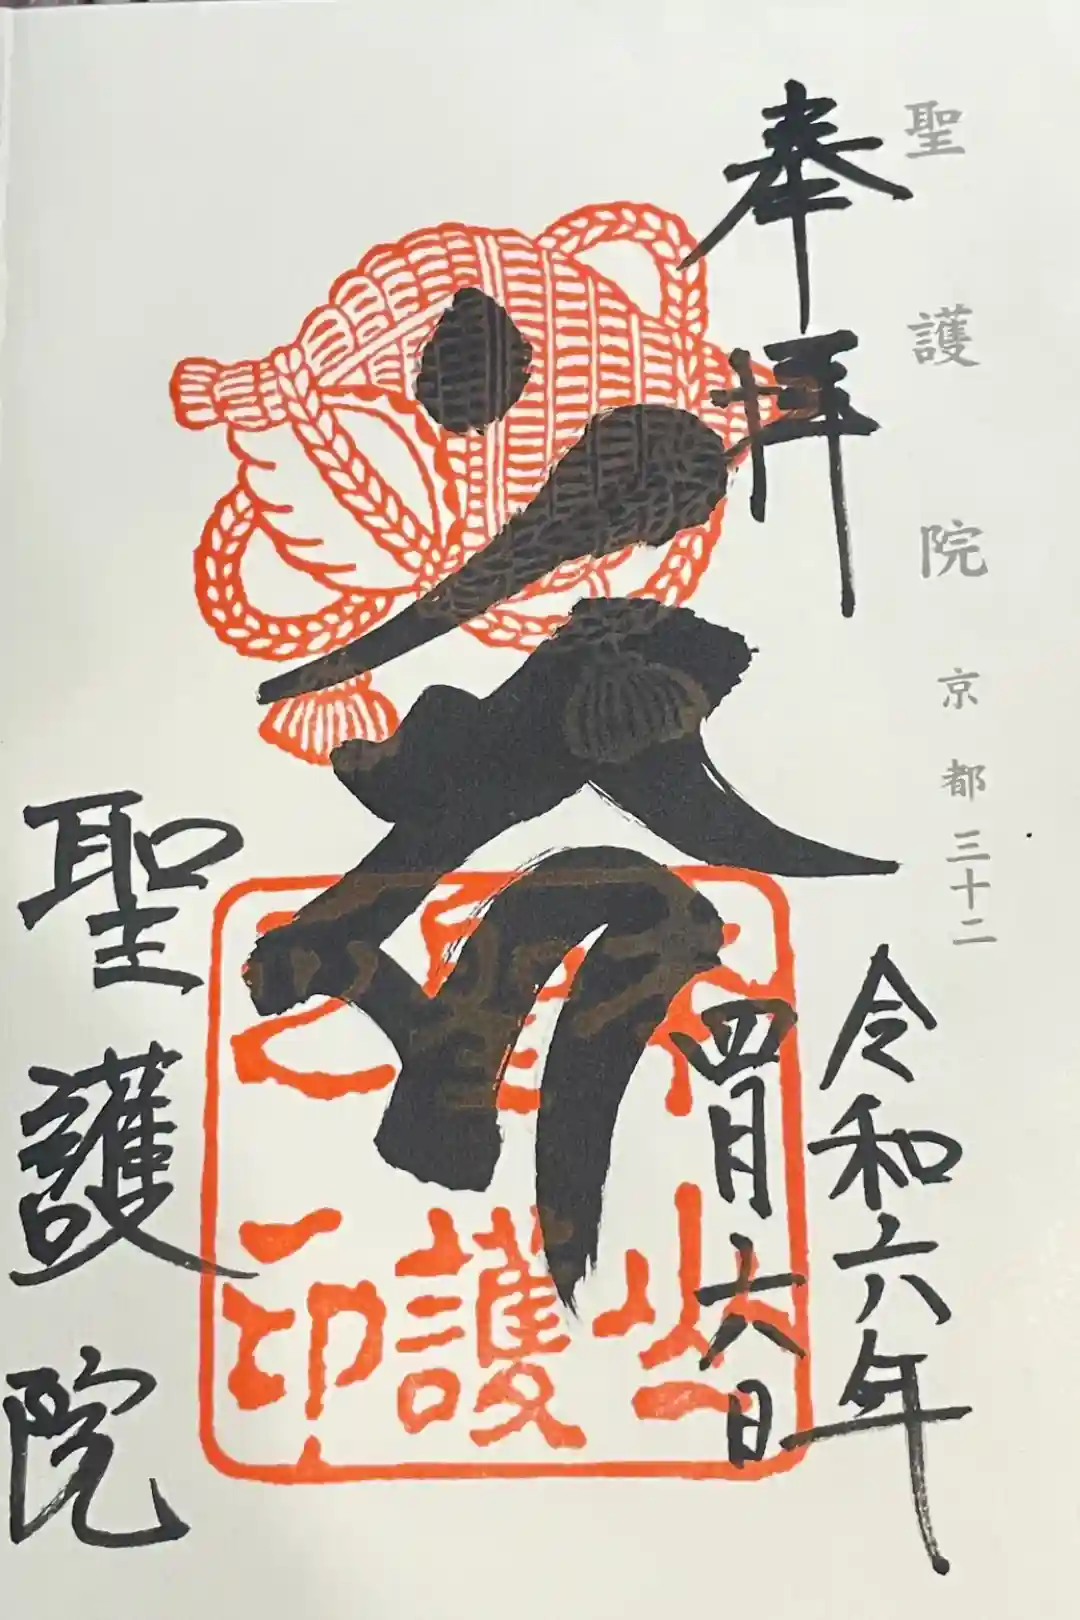 聖護院 京都三十二
奉拝
令和六年
四月六日
聖護院